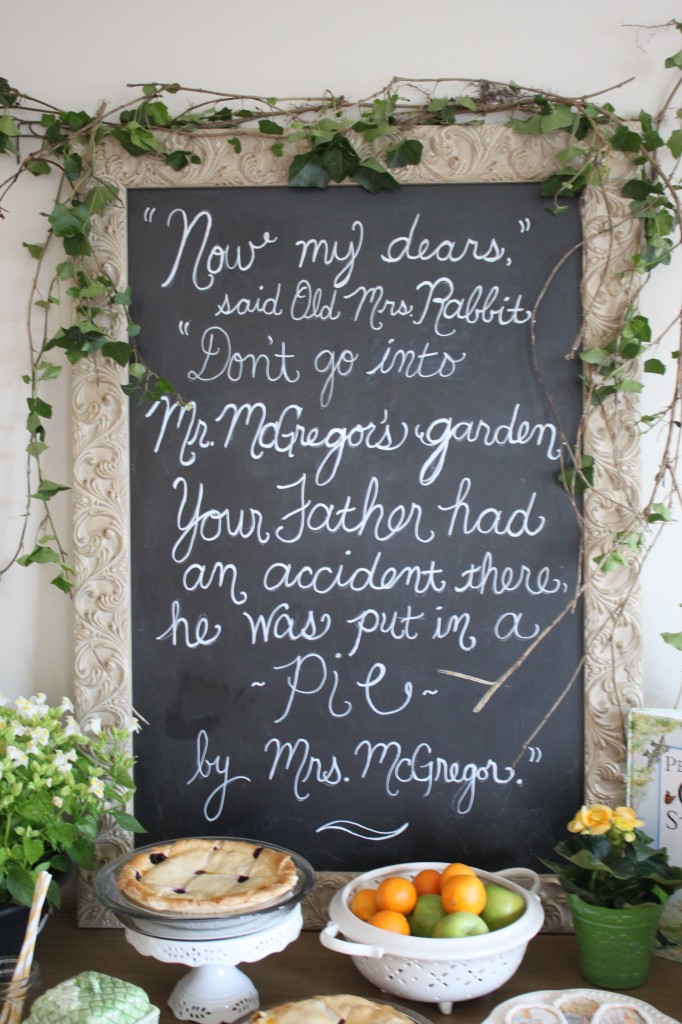 "Now my dears,"
said Old Mrs. Rabbit
"Don't go into
Mr. McGregor's garden
Your Father had
an accident there,
he was put in a
~ Pie ~
by Mrs. McGregor."